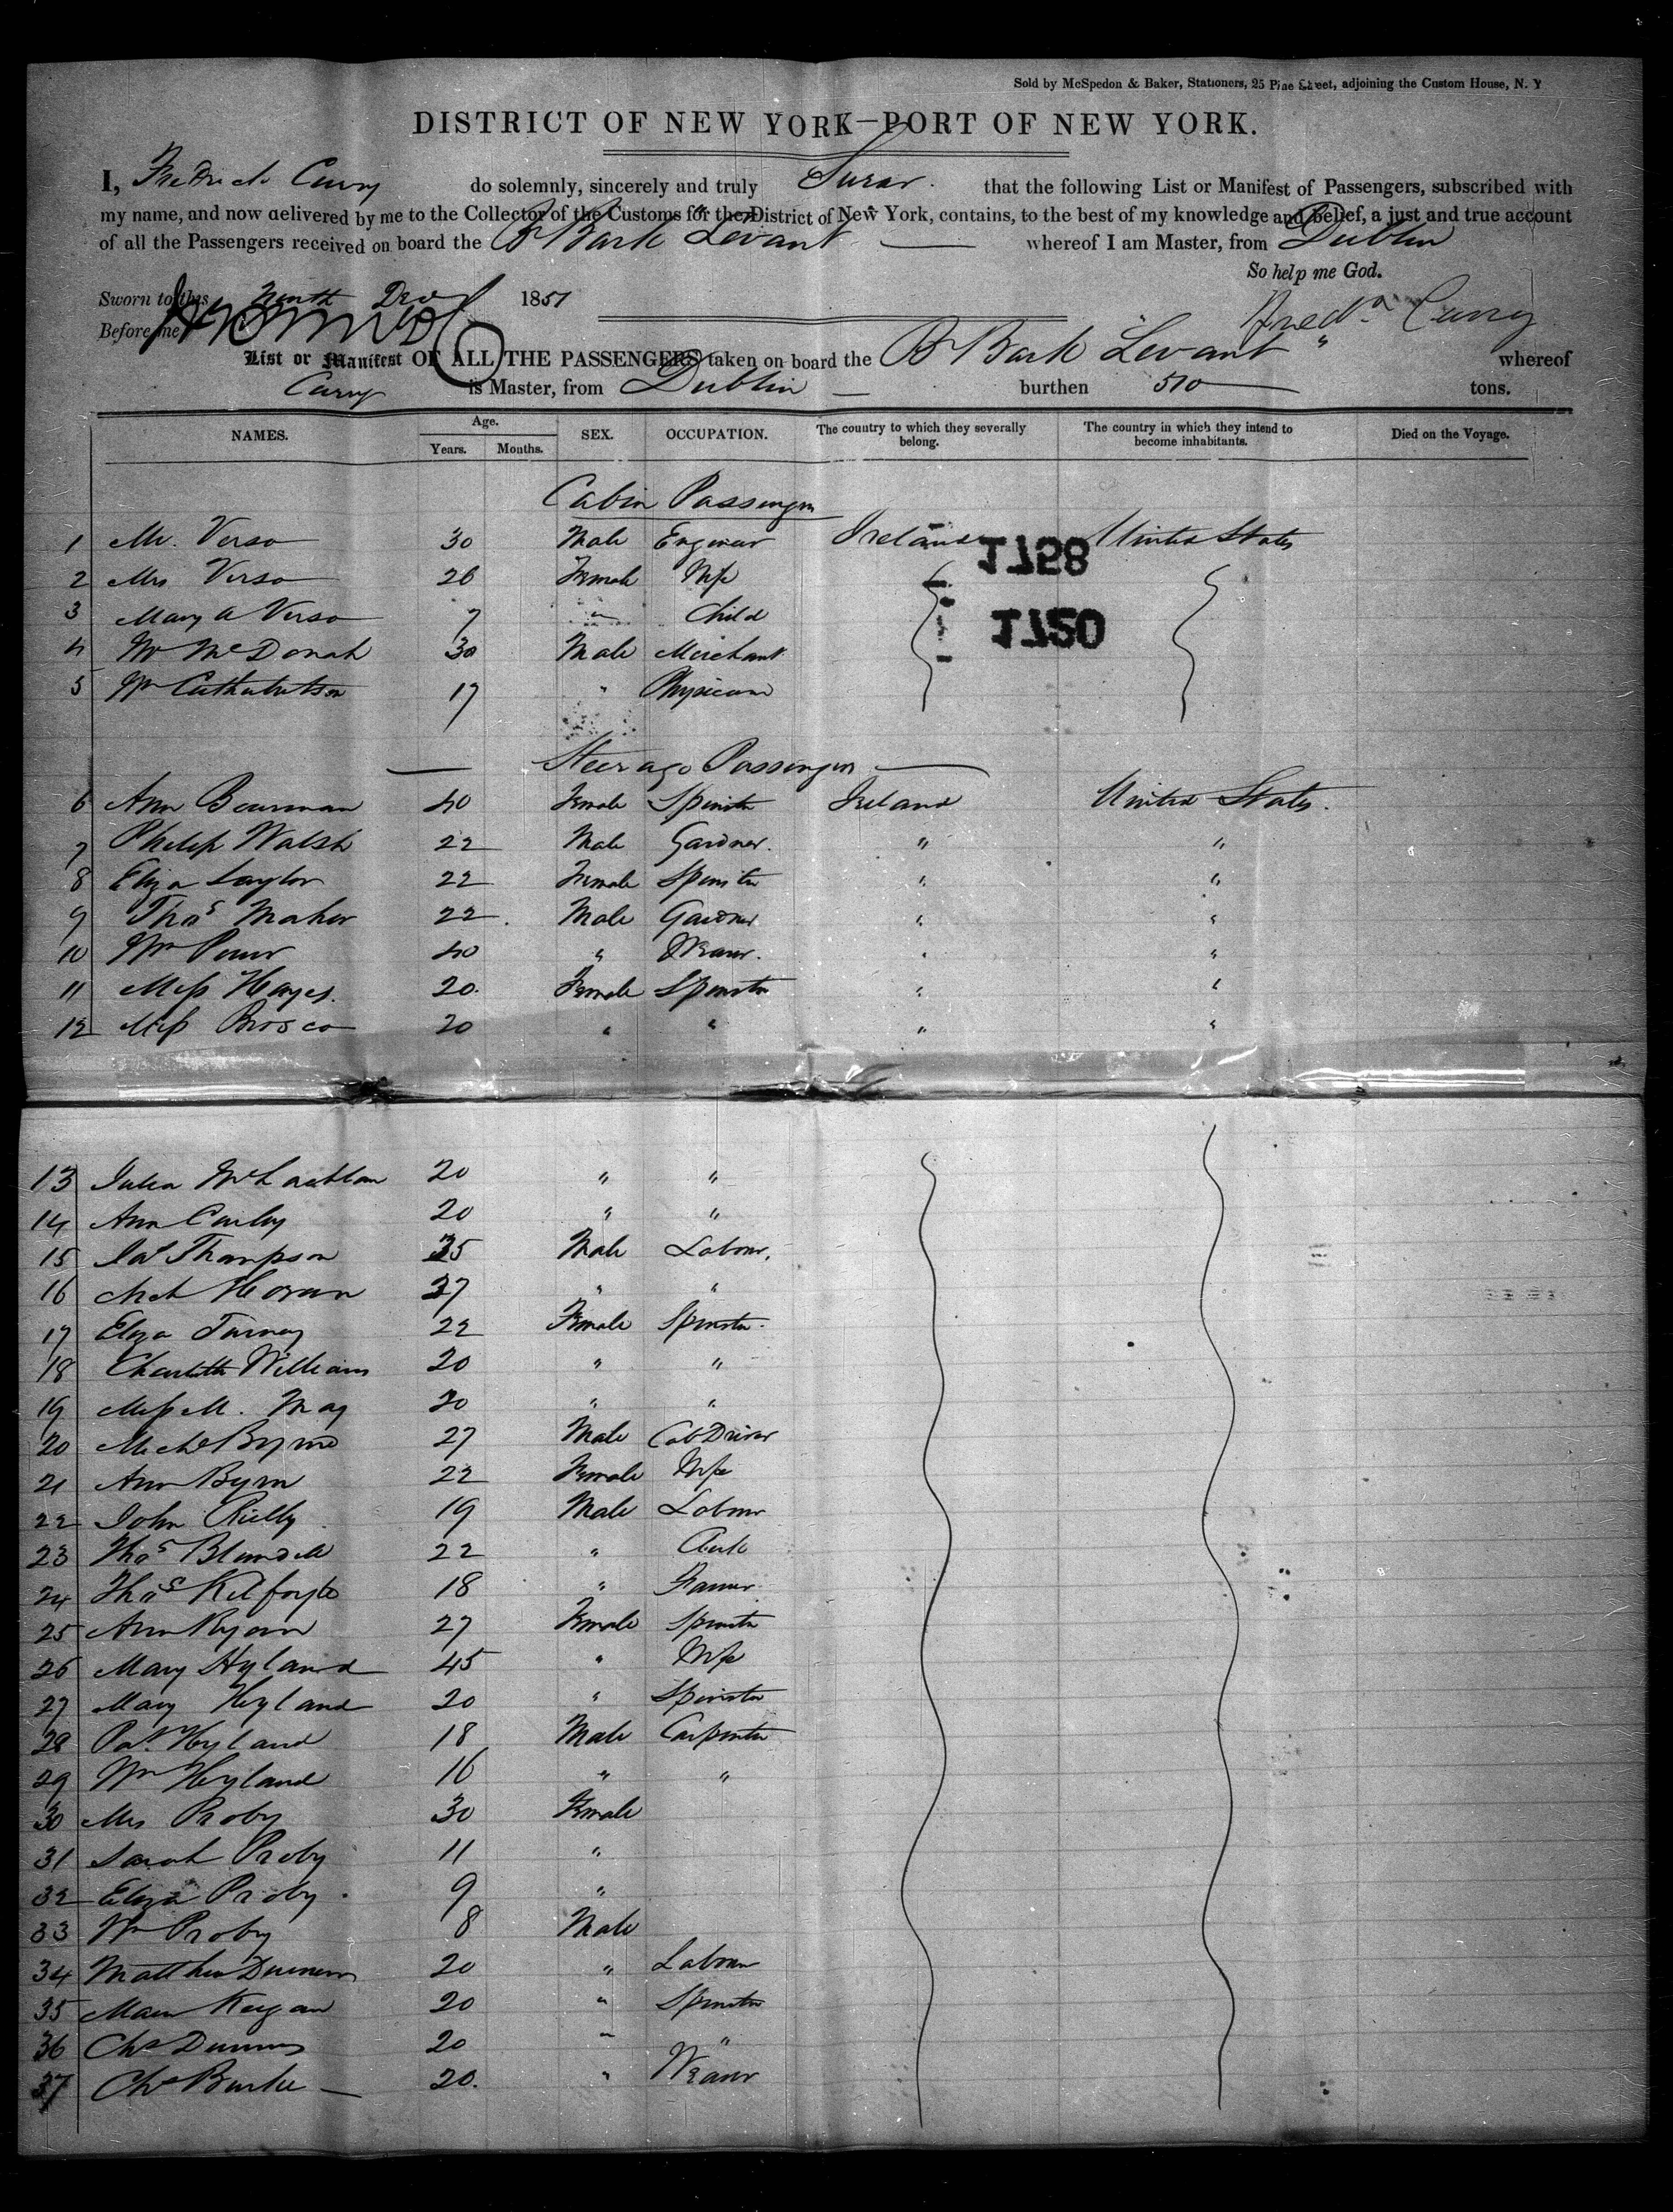 Sold by McSpedon & Baker, Stationers, 25 Pine Street, adjoining the Custom House, N. Y
DISTRICT OF NEW YORK—PORT OF NEW YORK.
I, Fredrick Curry do solemnly, sincerely and truly Swear that the following List or Manifest of Passengers, subscribed with
my name, and now delivered by me to the Collector of the Customs for the District of New York, contains, to the best of my knowledge and belief, a just and true account
of all the Passengers received on board the B Bark "Levant" whereof I am Master, from Dublin
So help me God.
Sworn to this Ninth Decr 1851
Fredk Curry
Before me
List or Manifest OF ALL THE PASSENGERS taken on board the B Bark "Levant" whereof
Curry is Master, from Dublin burthen 510 tons.
NAMES. Age. Years. Months. SEX. OCCUPATION. The country to which they severally belong. The country in which they intend to become inhabitants. Died on the Voyage.
Cabin Passengers
1 Mr. Verso 30 Male Engineer Ireland United States
1758
2 Mrs Verso 26 Female Wife
3 Mary A Verso 7 " Child
1750
4 Mr McDonah 30 Male Merchant
5 Wm 17 " Physician
Steerage Passengers
6 Ann Bowman 40 Female Spinster Ireland United States.
7 Philip Walsh 22 Male Gardner. " "
8 Eliza Saylor 22 Female Spinster " "
9 Thos Maher 22 Male Gardner " "
10 Wm Power 40 " Weaver. " "
11 Miss Hayes. 20. Female Spinster " "
12 Miss Brosco 20 " " " "
13 Julia McLachlan 20 " "
14 Ann Curley 20 " "
15 Jas Thompson 35 Male Labour,
16 Mich Horan 27 " "
17 Eliza Turney 22 Female Spinster.
18 Charlotte Williams 20 " "
19 Miss M. May 20 " "
20 Michl Byrne 27 Male Cab Driver
21 Ann Byrn 22 Female Wife
22 John Rielly 19 Male Labour
23 Thos Blundell 22 " Clerk
24 Thos Kilfoyle 18 " Farmer
25 Ann Ryan 27 Female Spinster
26 Mary Hyland 45 " Wife
27 Mary Hyland 20 " Spinster
28 Pat Hyland 18 Male Carpenter
29 Wm Hyland 16 " "
30 Mrs Proby 30 Female
31 Sarah Proby 11 "
32 Eliza Proby. 9 "
33 Wm Proby 8 Male
34 Matthew 20 " Labour
35 Keegan 20 " Spinster
36 Chs 20 " "
37 Chs Burke 20. " Weaver